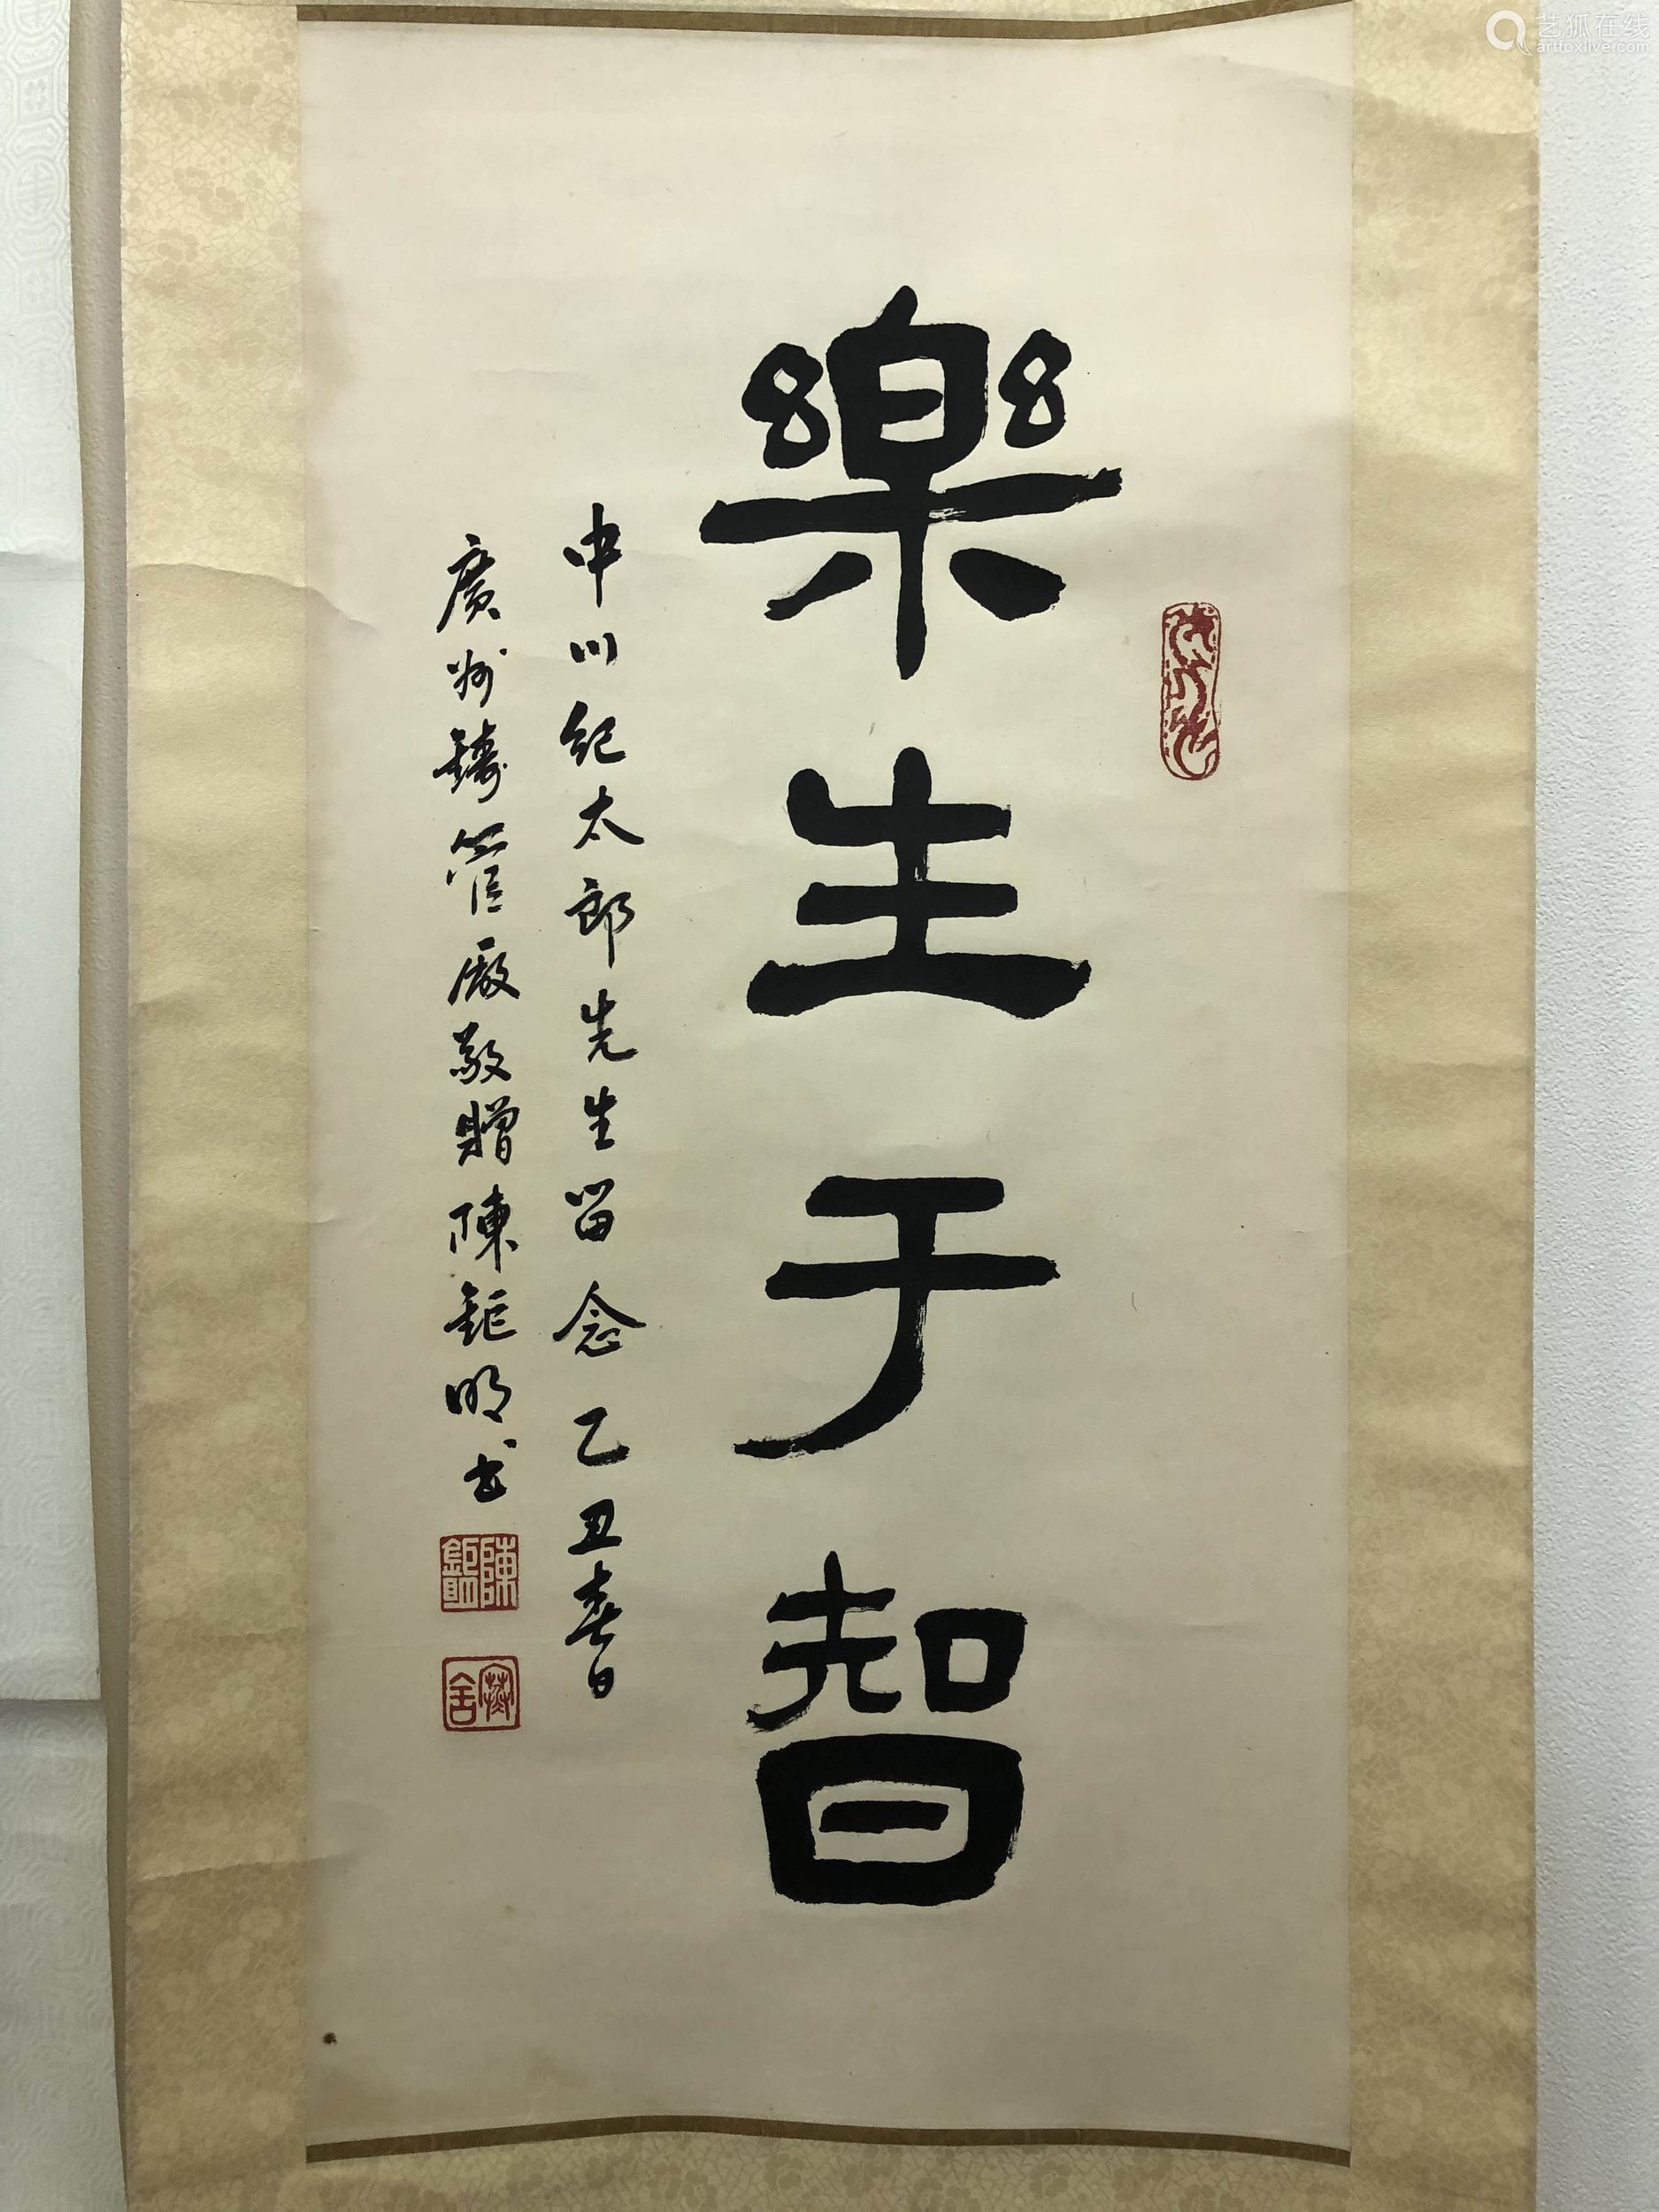 樂生于智
中川紀太郎先生留念乙丑春日
廣州鑄管廠敬贈陳鉅明書
陳鉅明
艺狐在线
artfoxlive.com